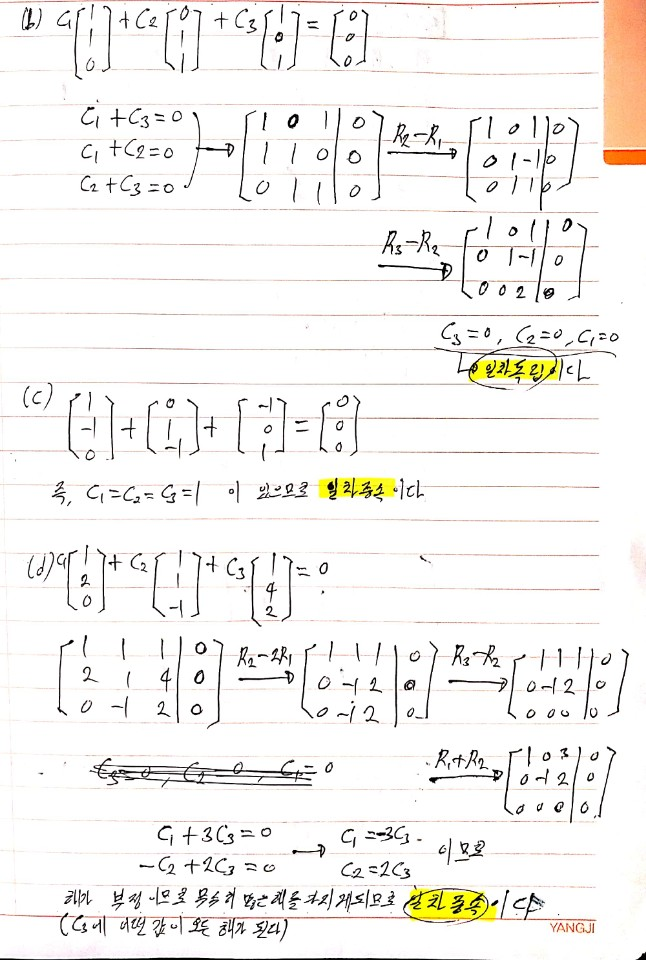 (b) C₁[1 1 0] + C₂[0 1 1] + C₃[1 0 1] = [0 0 0]
C₁ + C₃ = 0
C₁ + C₂ = 0
C₂ + C₃ = 0
→ [1 0 1 | 0
1 1 0 | 0
0 1 1 | 0]
R₂ - R₁ → [1 0 1 | 0
0 1 -1 | 0
0 1 1 | 0]
R₃ - R₂ → [1 0 1 | 0
0 1 -1 | 0
0 0 2 | 0]
C₃ = 0, C₂ = 0, C₁ = 0
↳ 일차독립이다
(c) [1 -1 0] + [0 1 -1] + [-1 0 1] = [0 0 0]
즉, C₁ = C₂ = C₃ = 1 이 있으므로 일차종속이다
(d) C₁[1 2 0] + C₂[1 1 -1] + C₃[1 4 2] = 0
[1 1 1 | 0
2 1 4 | 0
0 -1 2 | 0]
R₂ - 2R₁ → [1 1 1 | 0
0 -1 2 | 0
0 -1 2 | 0]
R₃ - R₂ → [1 1 1 | 0
0 -1 2 | 0
0 0 0 | 0]
C₃ = 0, C₂ = 0, C₁ = 0
R₁ + R₂ → [1 0 3 | 0
0 -1 2 | 0
0 0 0 | 0]
C₁ + 3C₃ = 0 → C₁ = -3C₃ 이므로
-C₂ + 2C₃ = 0 C₂ = 2C₃
해가 부정이므로 무수히 많은 해를 가지게되므로 일차종속이다
(C₃에 어떤 값이 오든 해가 된다)
YANGJI